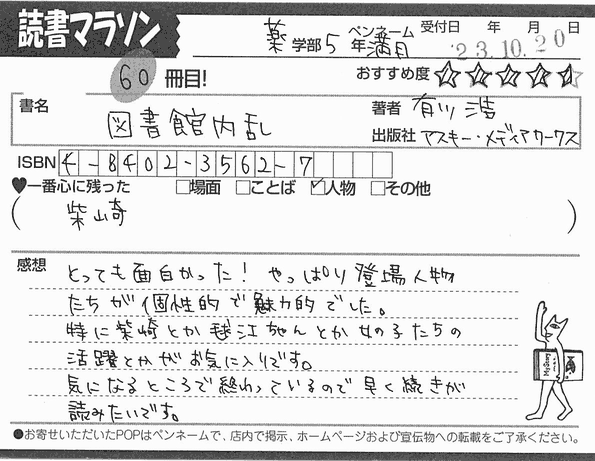 読書マラソン
薬学部5年 ペンネーム 満月 受付日 年 月 日
'23.10.20
60冊目!
おすすめ度 ☆☆☆☆☆
書名 図書館内乱
著者 有川 浩
出版社 アスキー・メディアワークス
ISBN 4-8402-3562-7
♥一番心に残った □場面 □ことば ☑人物 □その他
( 柴崎 )
感想
とっても面白かった! やっぱり登場人物
たちが個性的で魅力的でした。
特に柴崎とか毬江ちゃんとか女の子たちの
活躍とかがお気に入りです。
気になるところで終わっているので早く続きが
読みたいです。
●お寄せいただいたPOPはペンネームで、店内で掲示、ホームページおよび宣伝物への転載をご了承ください。